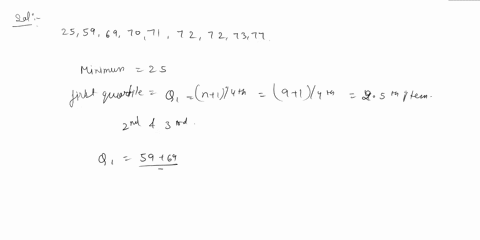 Sol:-
25, 59, 69, 70, 71, 72, 72, 73, 77
Minimum = 25
first quartile = Q1 = (n+1)/4 th = (9+1)/4 th = 2.5 th item.
2nd & 3rd.
Q1 = 59+69